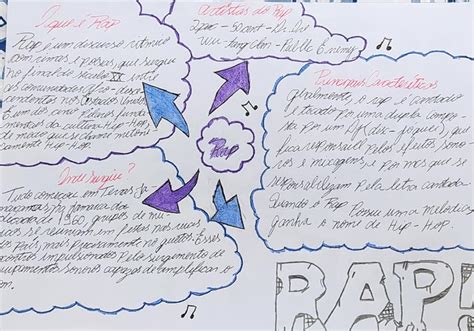 O que é Rap
Rap é um discurso rítmico
com rimas e poesias, que surgiu
no final do século XX entre
comunidades afro-descendentes
nos Estados Unidos
É um dos cinco pilares fundamentais
da cultura Hip-Hop
de modo que se chame
Hip-Hop.
Artistas do Rap
2pac - Dr. Dre
Wu-tang clan - Public Enemy
Rap
Principais Características
Geralmente o rap é cantado
e tocado por uma dupla composta
por um Dj (disc-jóquei), que
fica responsável pelos efeitos sonoros
e mixagens, e por mcs que se
responsabilizam pela letra cantada
Quando o Rap possui uma melodia
ganha o nome de Hip-Hop.
Onde Surgiu?
Tudo começou em Terras Jamaicanas
na Jamaica da
década de 1960, grupos de
se reuniam em festas nas ruas
do País mais precisamente no guetos. Esses
contos impulsionados Pelo surgimento de
equipamentos sonoros capazes de amplificar o
som.
RAP